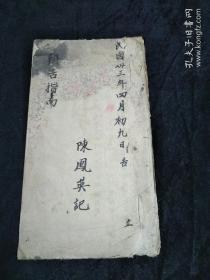 民國卅三年四月初九日吉
指南
陳鳳英記
孔夫子旧书网